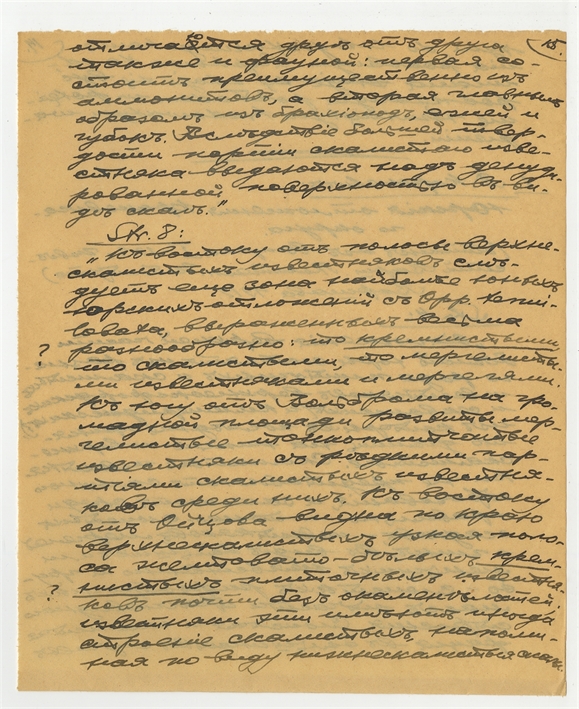 15.
отличается другъ отъ друга
также и фауной: первая со-
стоитъ преимущественно изъ
аммонитовъ, а вторая главнымъ
образомъ изъ брахіоподъ, ежей и
губокъ. Вслѣдствіе большей твер-
дости партіи скалистаго изве-
стняка выдаются надъ денуди-
рованной поверхностью въ ви-
дѣ скалъ."
Str. 8:
"Къ востоку отъ полосы верхне-
скалистыхъ известняковъ слѣ-
дуетъ еще зона наиболѣе юныхъ
юрскихъ отложеній съ Opp. tenui-
lobata, выраженныхъ весьма
разнообразно: то кремнистыми,
?
то скалистыми, то мергелисты-
ми известняками и мергелями.
Къ югу отъ Вольброма на гро-
мадной площади развиты мер-
гелистые тонкоплитчатые
известняки съ рѣдкими пар-
тіями скалистыхъ известня-
ковъ среди нихъ. Къ востоку
отъ Ойцова видна по краю
верхнескалистыхъ узкая поло-
са желтовато-бѣлыхъ крем-
нистыхъ плиточныхъ известня-
?
ковъ почти безъ окаменѣлостей.
известняки эти имѣютъ иногда
строеніе скалистыхъ, напоми-
ная по виду нижнескалистые